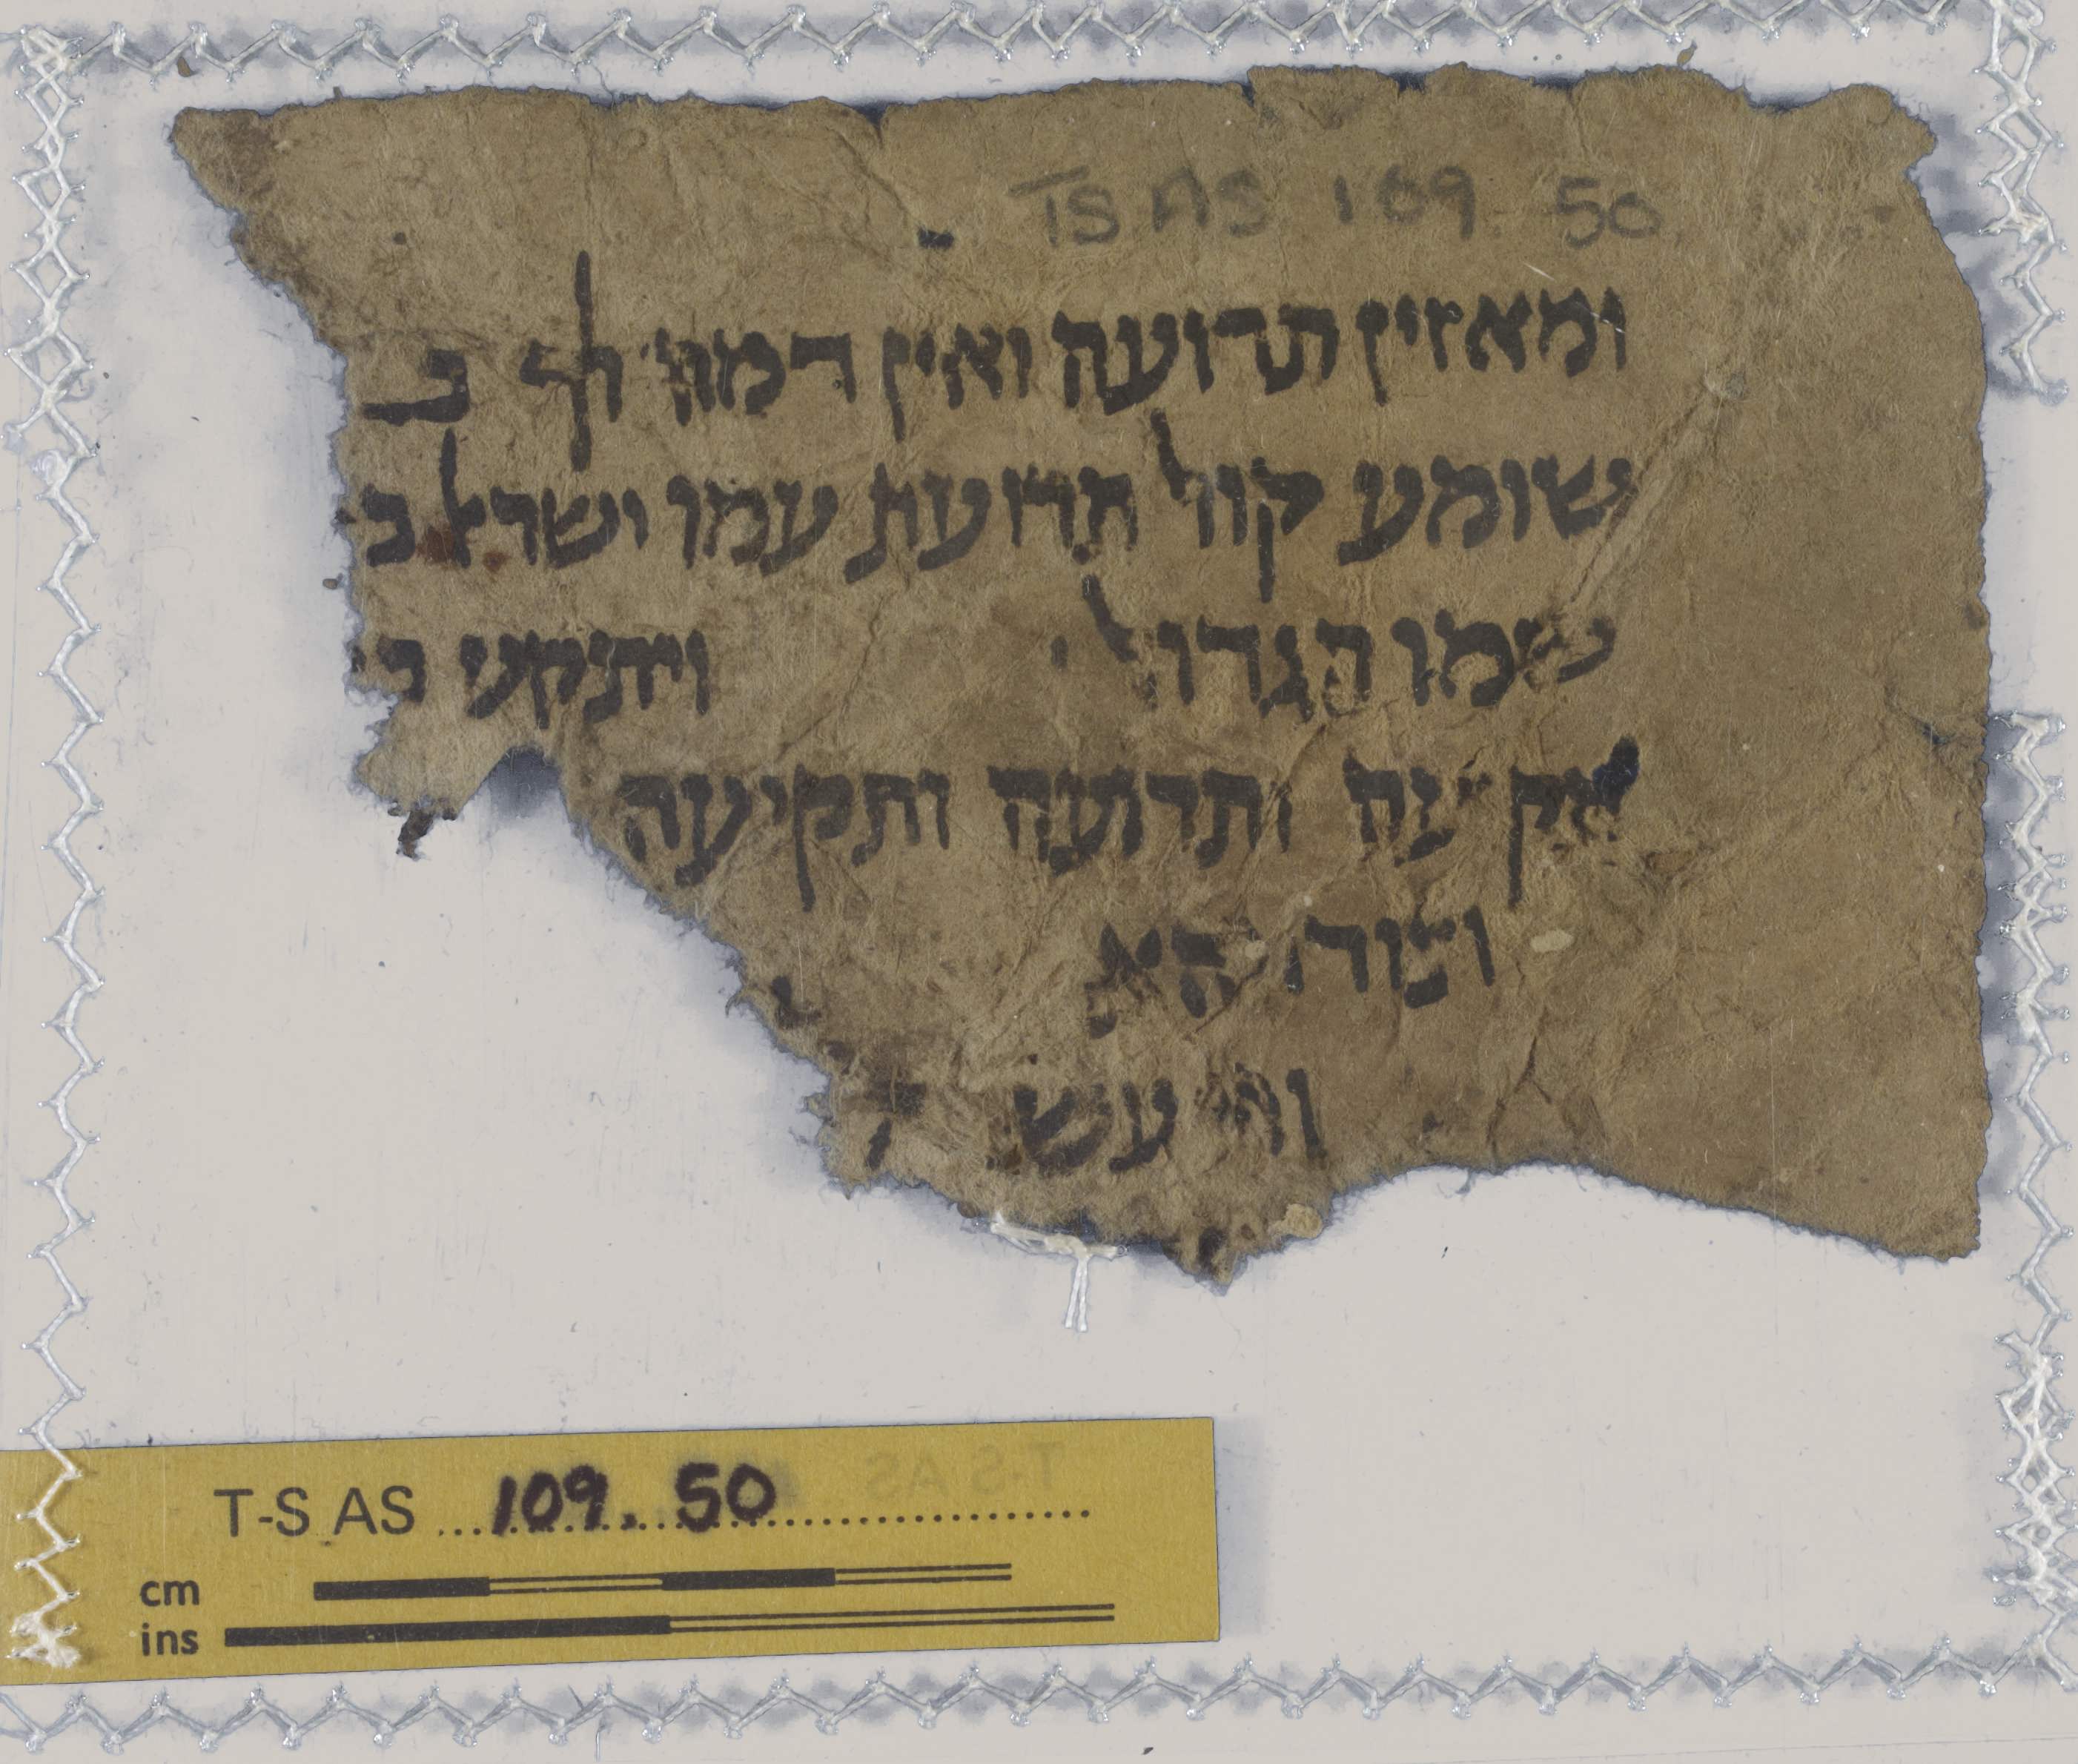 TS AS 109. 50
ומאזין תרועה ואין דמה לך ב
שומע קול תרועת עמו ישראל ב
שמו הגדול ויתקעו
ותרועה ותקיעה
T-S AS 109. 50
cm
ins